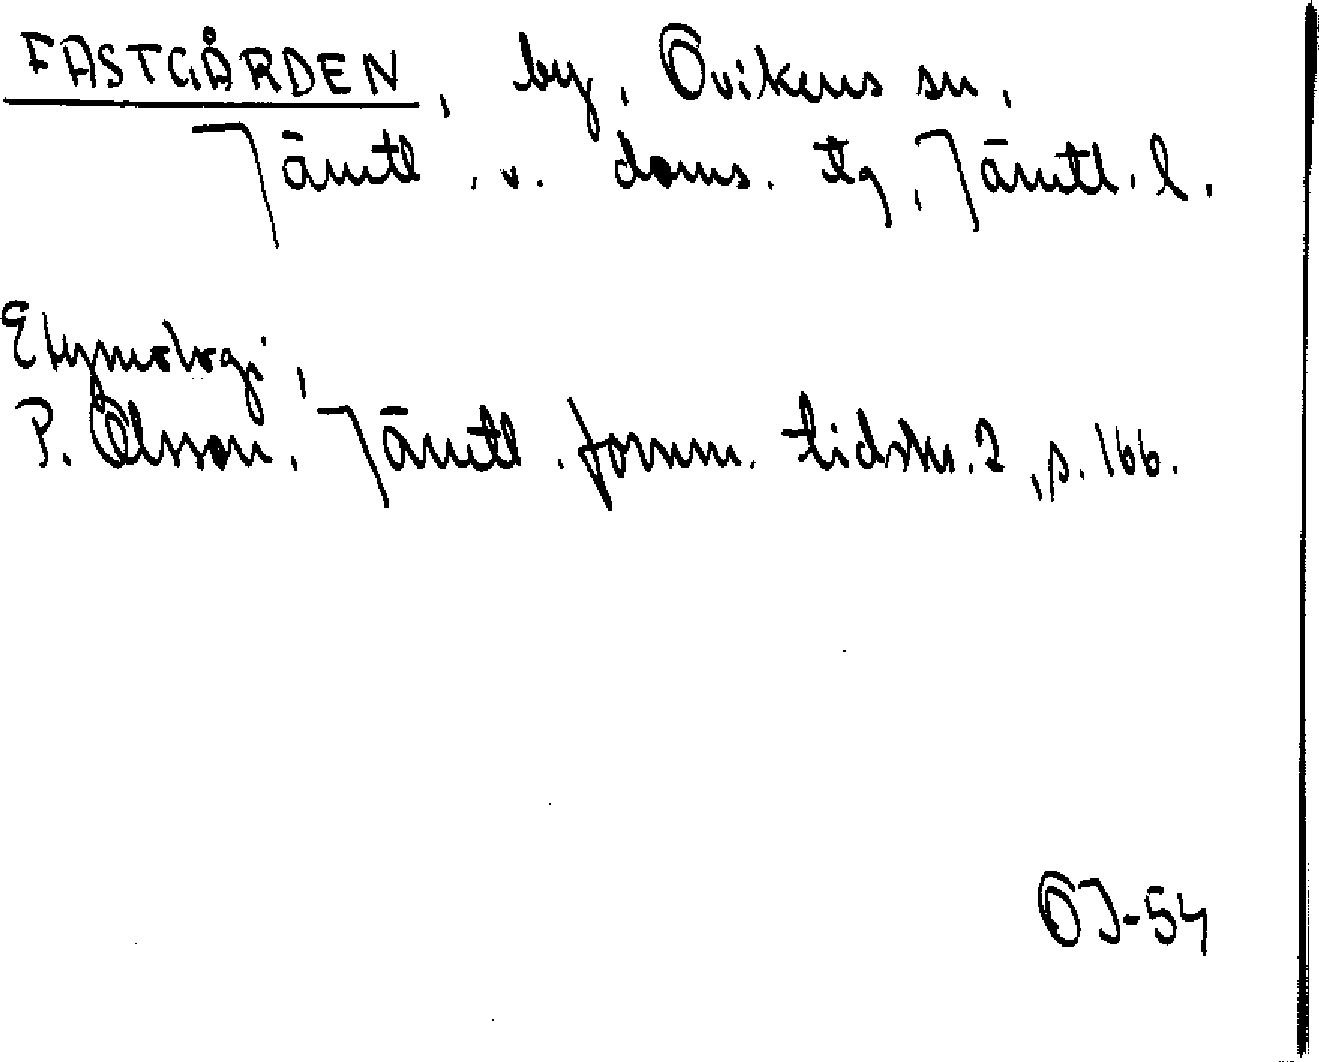 FASTGÅRDEN, by, Ovikens sn,
Jämtl. v. doms. tg, Jämtl. l.
Etymologi,
P. Olsson, Jämtl. fornm. tidskr. 2, s. 166.
OJ-54